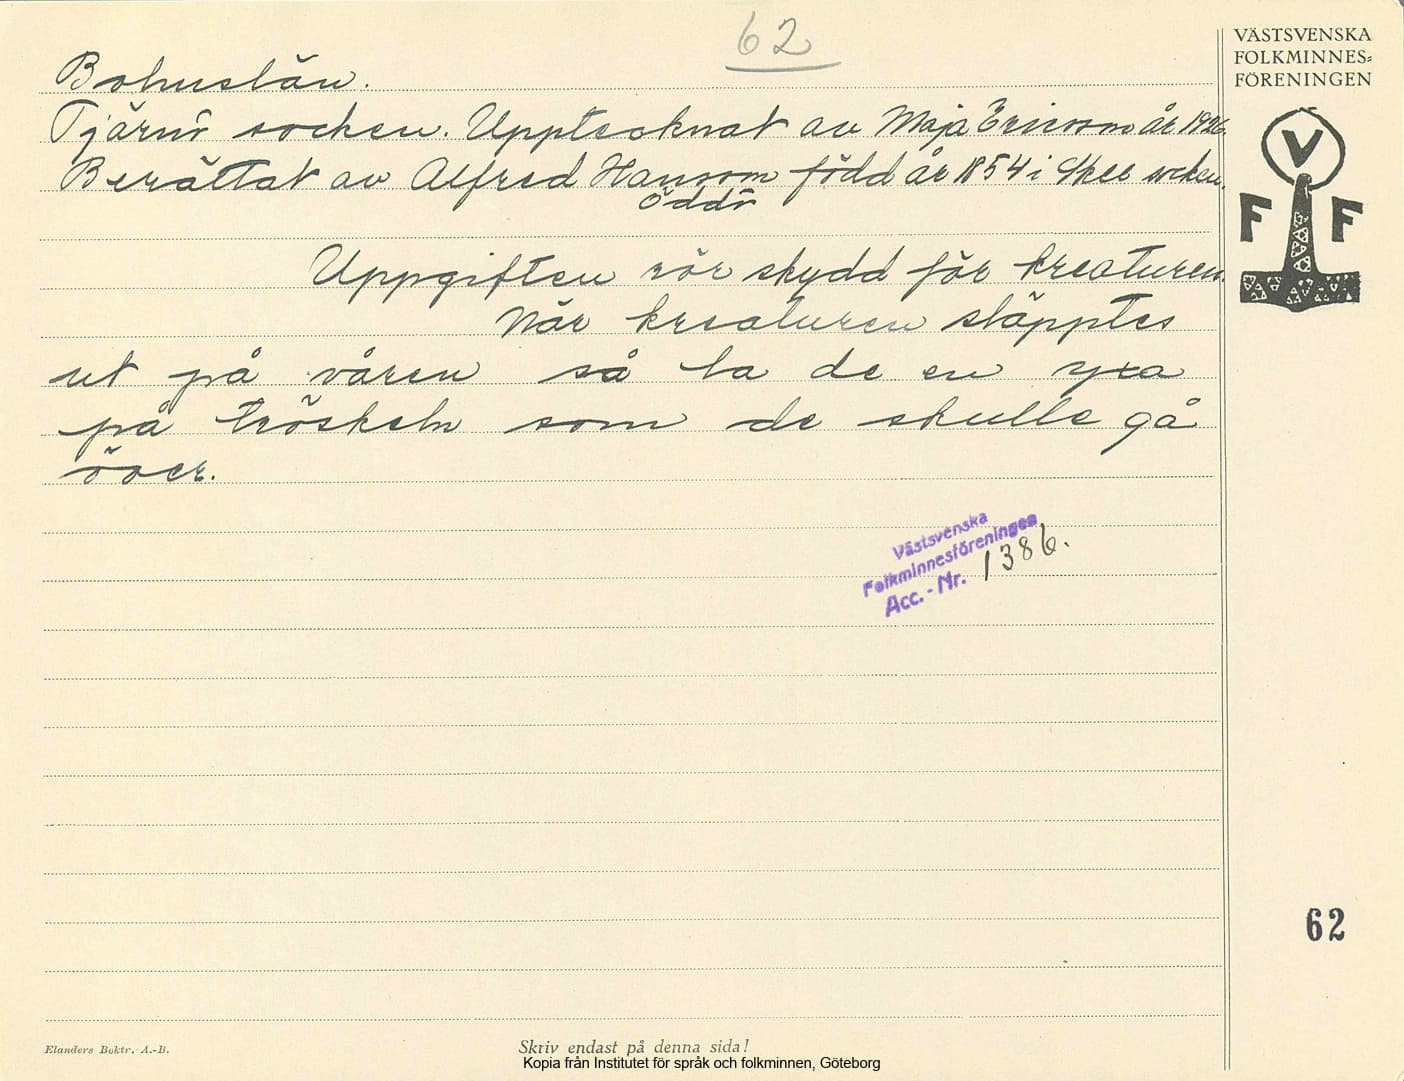 62
VÄSTSVENSKA
FOLKMINNES-
FÖRENINGEN
V
F F
Bohuslän.
Tjärnö socken. Upptecknat av Maja Ericson år 1926.
Berättat av Alfred Hansson född år 1854 i Skee socken.
Öddö
Uppgiften rör skydd för kreaturen.
När kreaturen släpptes
ut på våren så la de en yxa
på tröskeln som de skulle gå
över.
Västsvenska
Folkminnesföreningen
Acc.-Nr. 1386.
62
Elanders Boktr. A.-B.
Skriv endast på denna sida!
Kopia från Institutet för språk och folkminnen, Göteborg